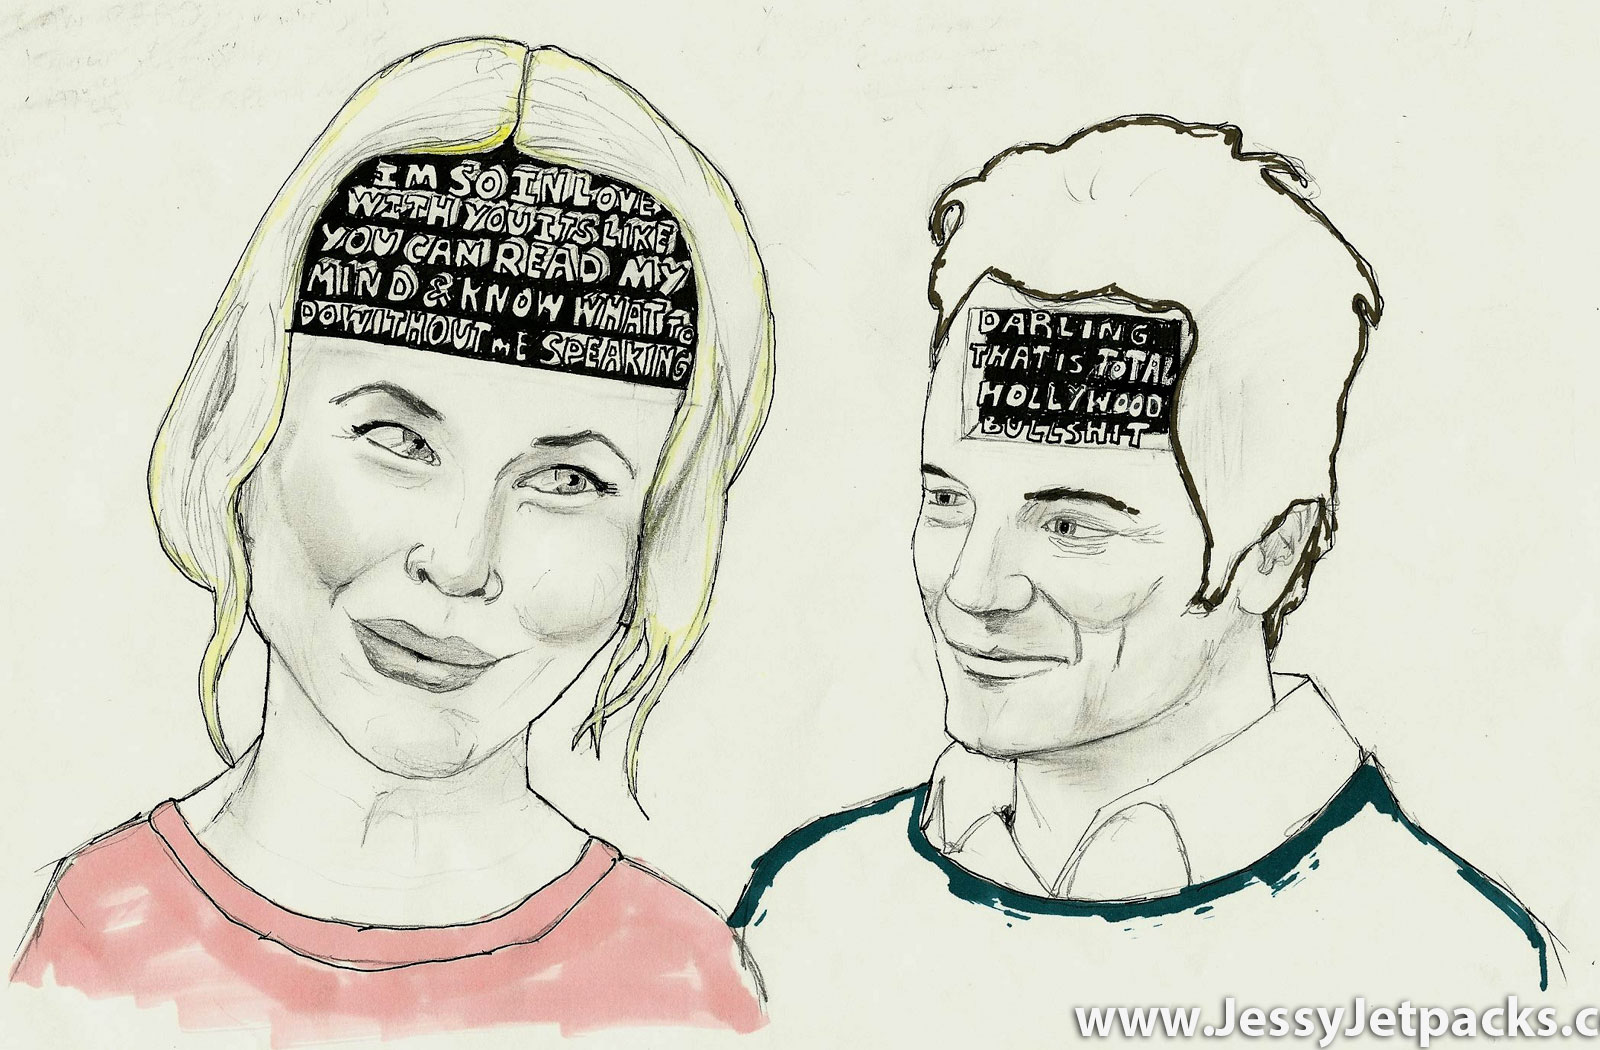 IM SO IN LOVE
WITH YOU ITS LIKE
YOU CAN READ MY
MIND & KNOW WHAT TO
DO WITHOUT ME SPEAKING
DARLING
THAT IS TOTAL
HOLLYWOOD
BULLSHIT
www.JessyJetpacks.c